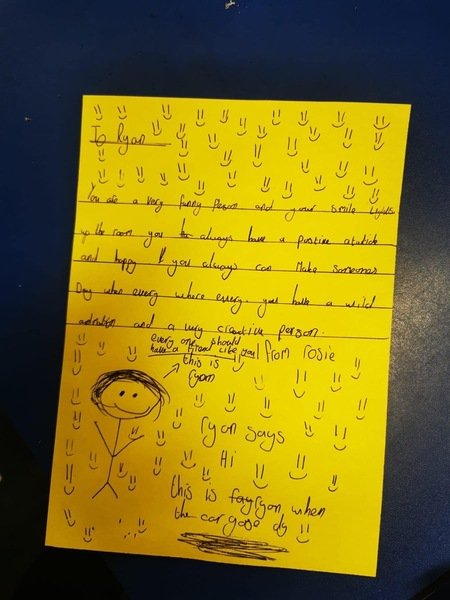 To Ryan
You are a very funny person and your smile lights
up the room you always have a positive atutide
and happy & you always can make someones
Day when every where every. you have a wild
and a very creative person.
every one should
have a friend like you! from rosie
this is
ryan
ryan says
Hi
this is ryan when
the car gose by